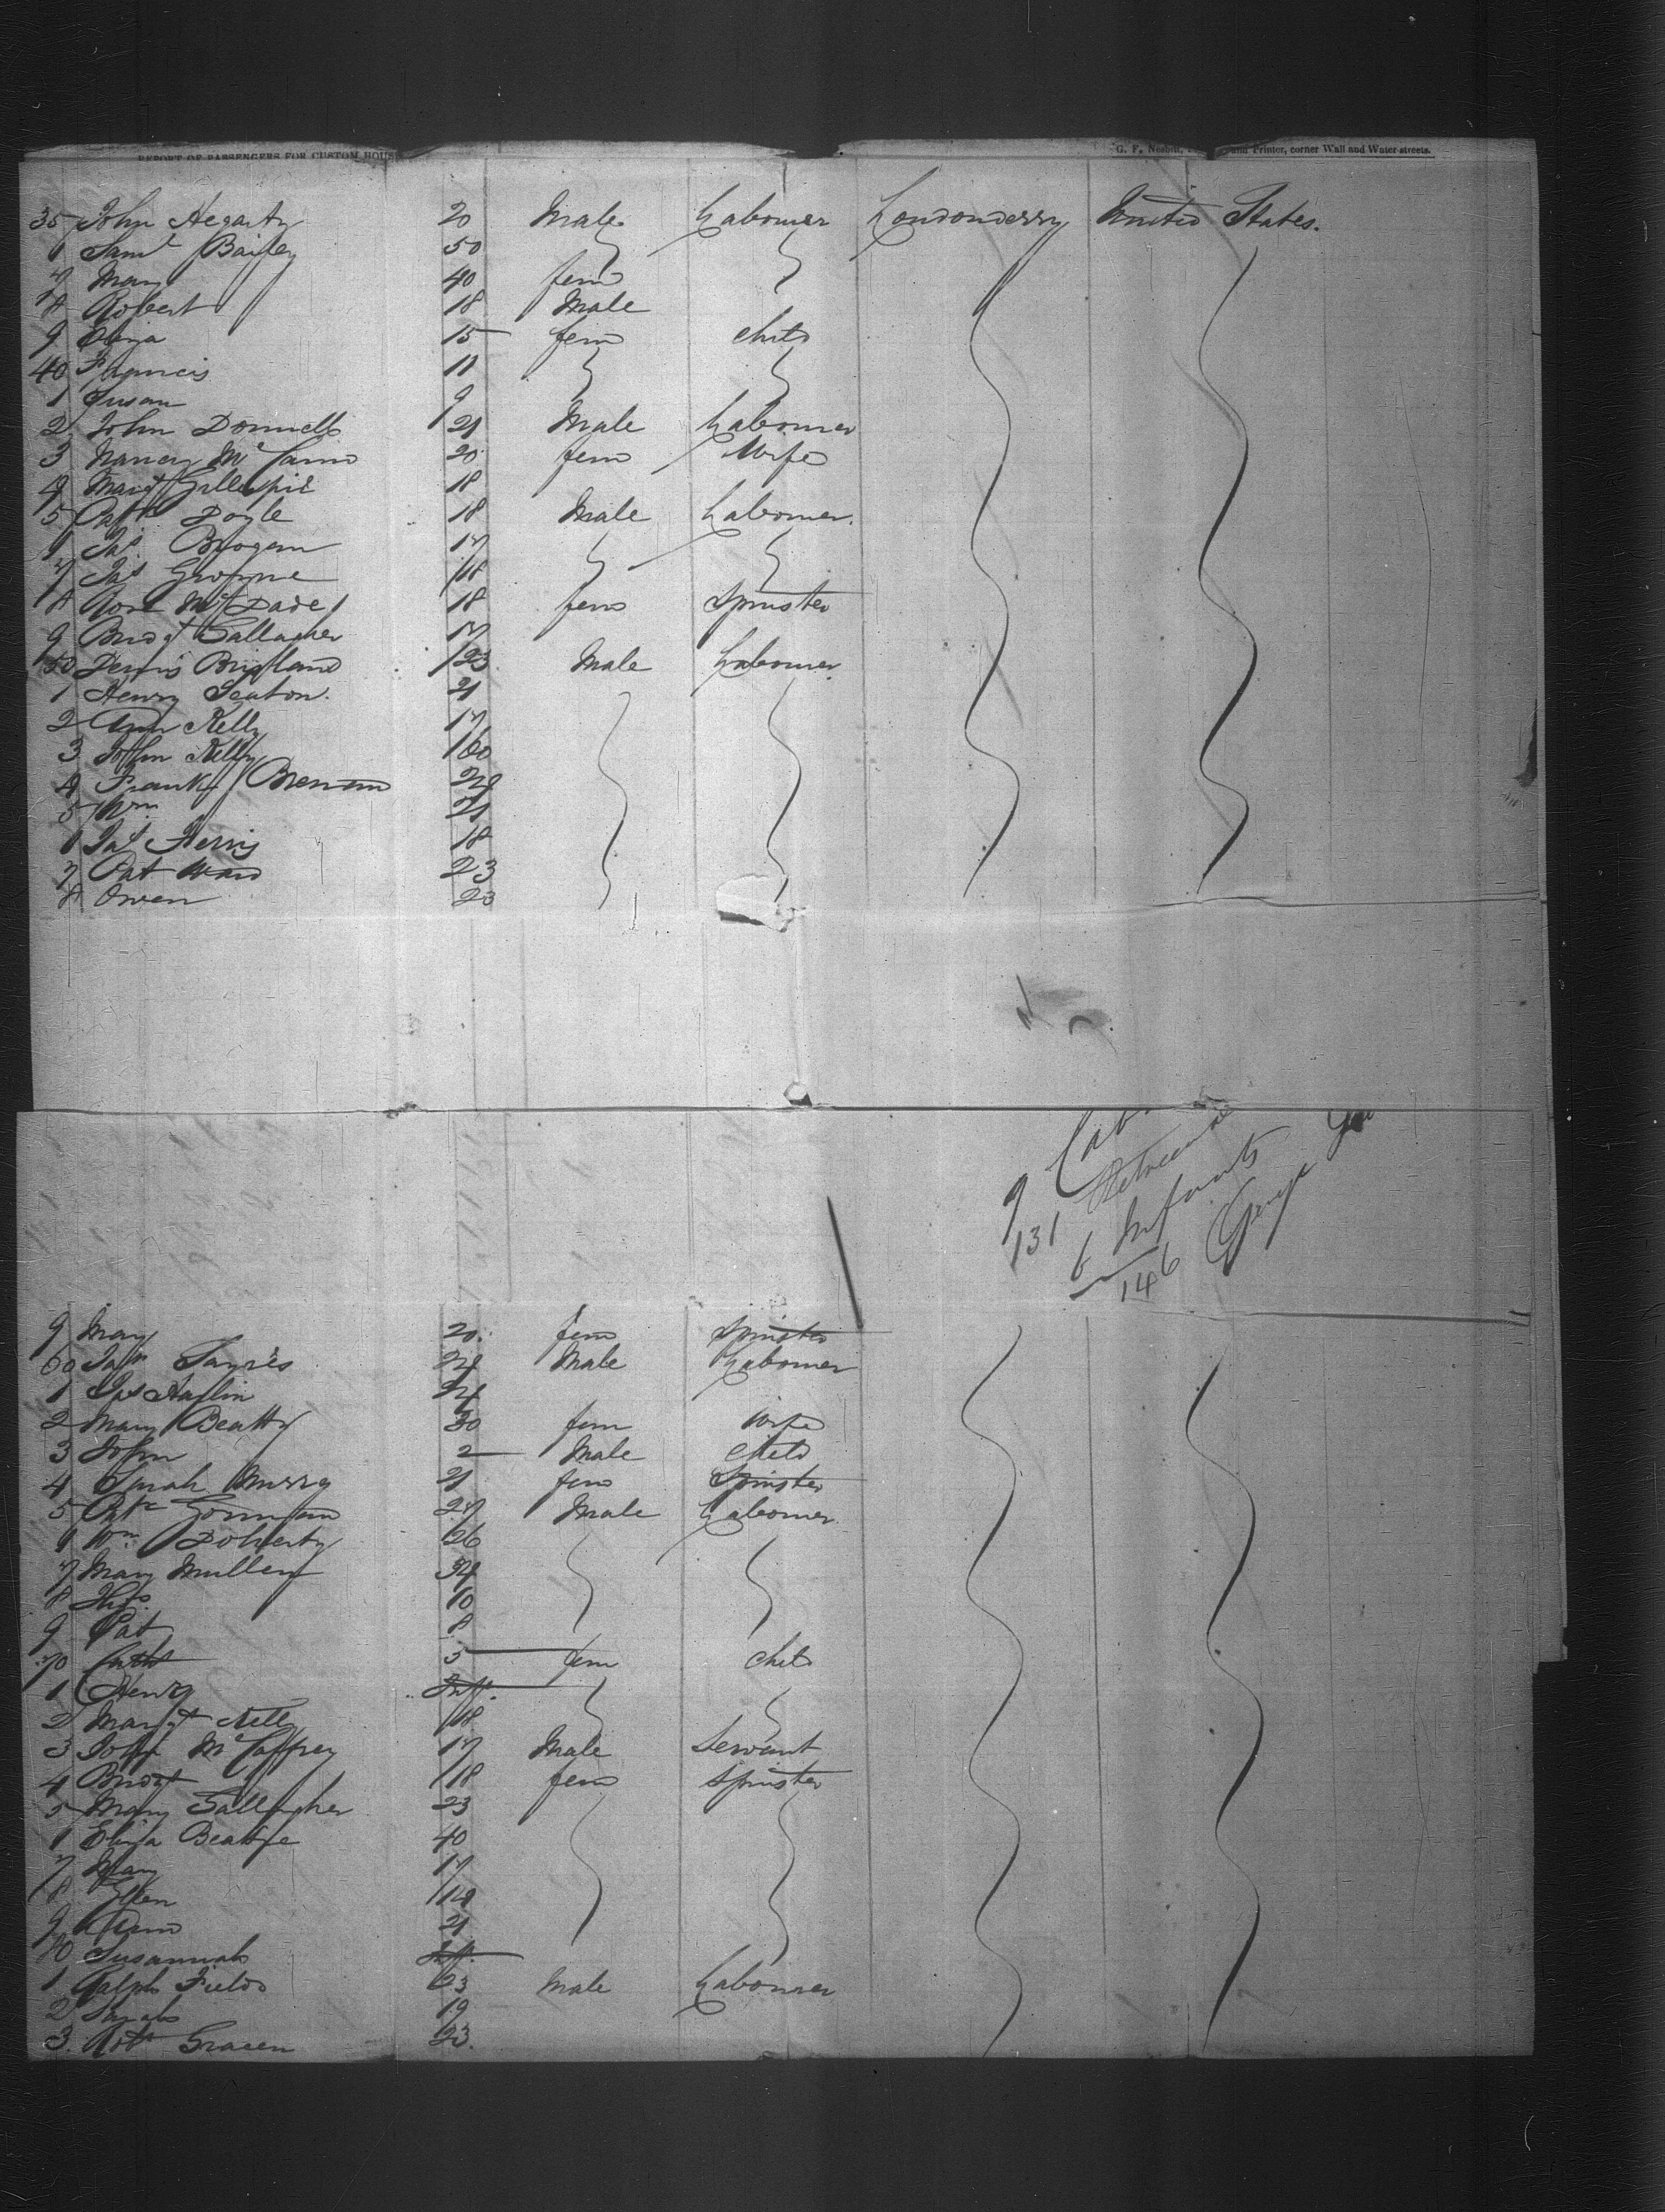 REPORT OF PASSENGERS FOR CUSTOM HOUS
G. F. Nesbitt, and Printer, corner Wall and Water-streets.
35 John Hegarty 20 Male Labourer Londonderry United States.
6 Saml Bailey 50
7 Mary 40 fem
8 Robert 18 Male
9 Eliza 15 fem child
40 Francis 11
1 Susan 9
2 John Donnell 21 Male Labourer
3 Nancy McCann 20 fem Wife
4 Margt Gillespie 18
5 Patk Doyle 18 Male Labourer.
6 Jas. Brogan 17
7 Jas 18
8 Rose McDade 18 fem Spinster
9 Bridgt Gallagher 17
50 Dennis Brisland 23 Male Labourer.
1 Henry Seaton. 21
2 Ann Kelly 17
3 John Kelly 60
4 Frank Brennan 24
5 Wm. 21
6 Jas Ferris 18
7 Pat Ward 23
8 Owen 23
9
131
6 Infants
146 George
9 May 20. fem Spinster
60 Jas Male Labourer
1 Jas Haslin 24
2 Mary Beatty 30 fem Wife
3 John 2 Male Child
4 Sarah 21 fem Spinster
5 Patk Gorman 27 Male Labourer.
6 Wm Doherty 26
7 Mary Mullen 34
8 Thos. 10
9 Pat 8
70 Cath 5 fem child
1 Henry Inft.
2 Margt 18
3 John McCaffrey 17 Male Servant
4 Bridgt 18 fem Spinster
5 Mary Gallagher 23
6 Eliza Beattie 40
7 Mary 17
8 Ellen 14
9 Ann 21
80 Susannah Inft.
1 Ralph Fields 23 Male Labourer
2 Sarah 19
3. Robt Gracen 23.